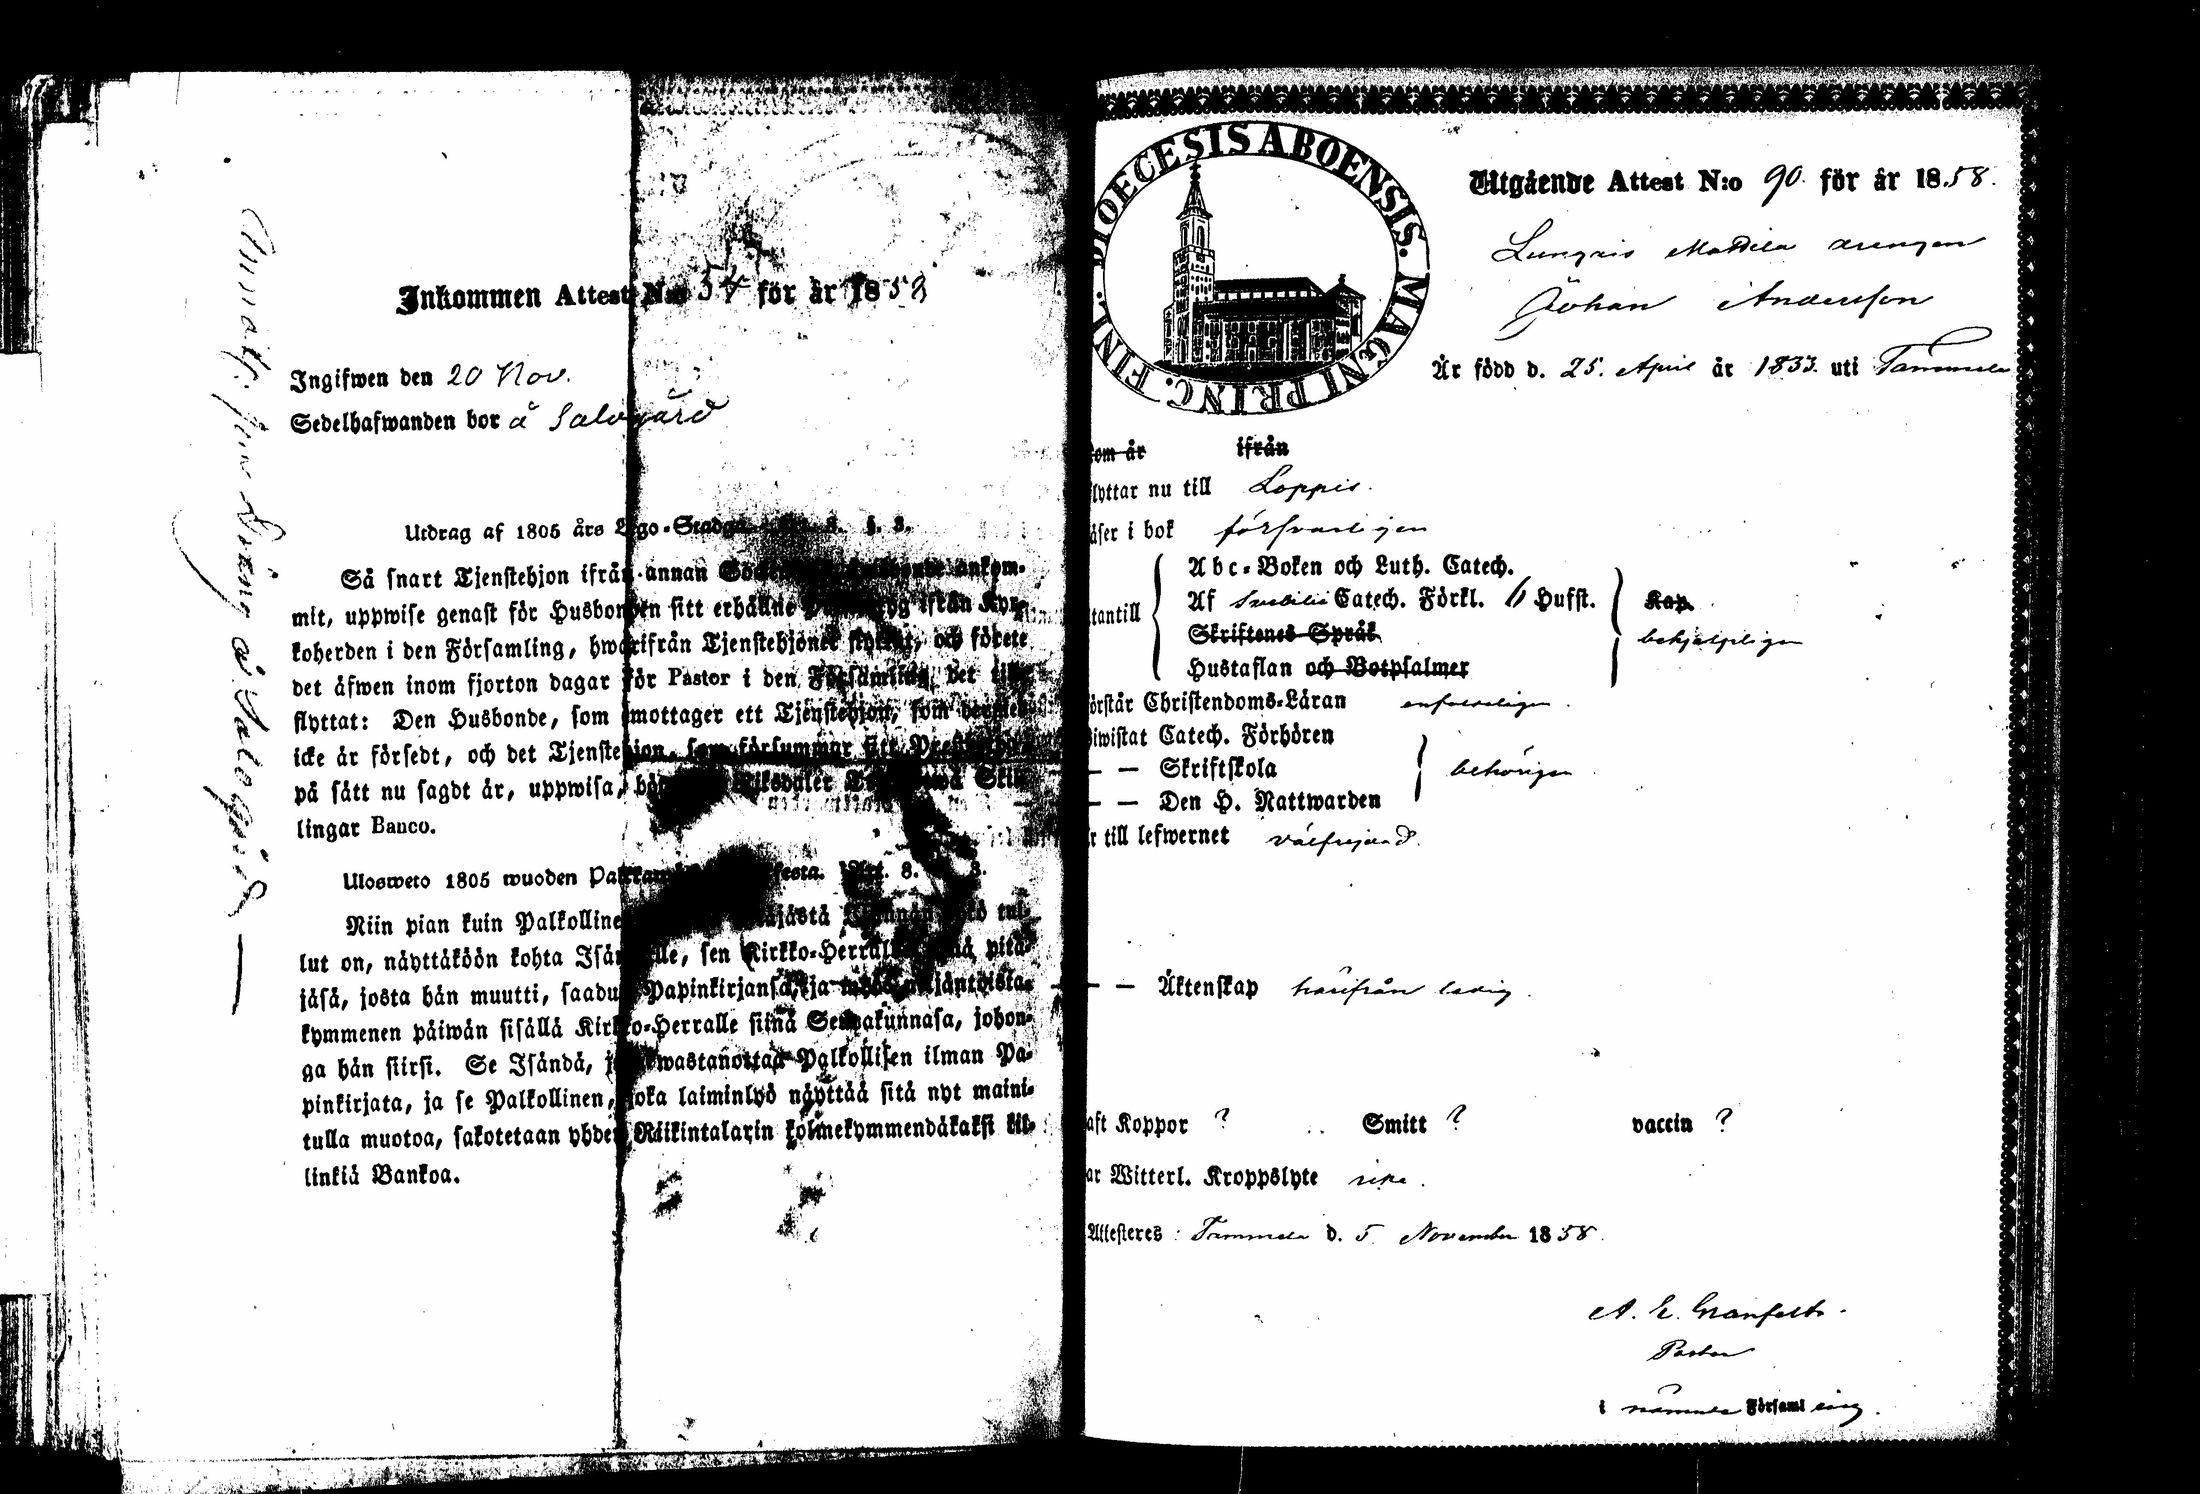 Inkommen Attest N:o 54 för år 1858
Ingifwen den 20 Nov.
Sedelhafwanden bor å Salogård
Utdrag af 1805 års Lego-Stadga Art. 8. §. 3.
Så snart Tjenstehjon ifrån annan ankom-
mit, uppwise genast för Husbonden sitt erhållne ifrån Kyr-
koherden i den Församling, hwarifrån Tjenstehjonet flyttat, och förete
det äfwen inom fjorton dagar för Pastor i den Församling, det
flyttat: Den Husbonde, som emottager ett Tjenstehjon, som dermed
icke är försedt, och det Tjenstehjon, som försummar sitt
på sätt nu sagdt är, uppwisa, Riksdaler Skil-
lingar Banco.
Ulosweto 1805 wuoden Art. 8. 3.
Niin pian kuin Palkollinen tul-
lut on, näyttäköön kohta Isännälle, sen Kirkko-Herralta siinä pitä-
jäsä, josta hän muutti, saadun Papinkirjansa, ja neljäntoista-
kymmenen päiwän sisällä Kirkko-Herralle siinä Seurakunnasa, johon-
ga hän siirsi. Se Isändä, joka wastanottaa Palkollisen ilman Pa-
pinkirjata, ja se Palkollinen, joka laiminlyö näyttää sitä nyt maini-
tulla muotoa, sakotetaan yhden Riikintalarin kolmekymmendäkaksi kil-
linkiä Bankoa.
dräng å Salogård
DIOECESIS ABOENSIS. MAGNI PRINC. FINL.
Utgående Attest N:o 90 för år 1858.
Johan Andersson
Är född d. 25. April år 1833. uti Tammela
om år ifrån
lyttar nu till Loppis.
äser i bok försvarligen
tantill
Abc-Boken och Luth. Catech.
Af Svebilii Catech. Förkl. Husst. Kap.
Skriftenes Språk
behjelpligen
Hustaflan och Botpsalmer
örstår Christendoms-Läran enfaldeligen.
iwistat Catech. Förhören
— — Skriftskola behörigen
— — Den H. Nattwarden
r till lefwernet välfrejdad.
— — Äktenskap härifrån ledig.
aft Koppor ? Smitt ? vaccin ?
ar Witterl. Kroppslyte icke.
Attesteres: Tammela d. 5 November 1858.
A. E. Granfelt.
Pastor
i nämnde Församling.